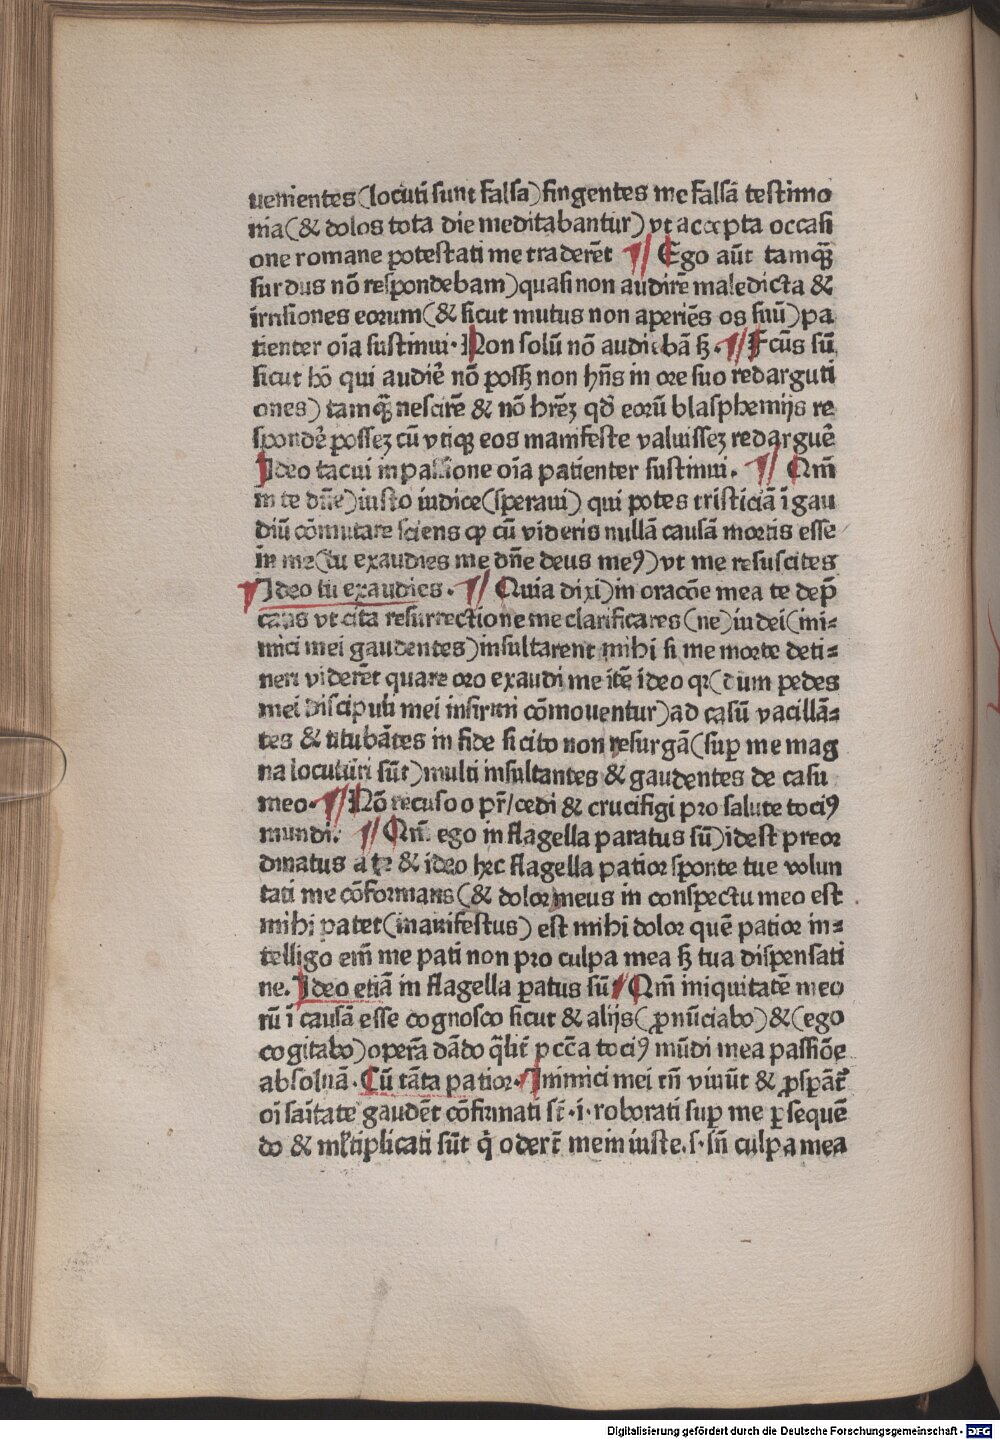 uenientes (locuti sunt falsa) fingentes me falsã testimo
nia (& dolos tota die meditabantur) vt accepta occasi
one romane potestati me traderẽt ¶ Ego aũt tamqꝫ̃
surdus nõ respondebam) quasi non audirẽ maledicta &
irrisiones eorum (& sicut mutus non aperiẽs os suũ) pa
tienter oĩa sustinui · Non solũ nõ audiebã sꝫ · ¶ Fcũs sũ
sicut hõ qui audiẽ nõ possꝫ non hñs in ore suo redarguti
ones) tamqꝫ̃ nescirẽ & nõ hrẽꝫ qđ eorũ blasphemijs re
spondẽ possеꝫ cũ vtiqꝫ eos manifeste valuissеꝫ redarguẽ
Ideo tacui in passione oĩa patienter sustinui · ¶ Qm̃
in te dñe) iusto iudice (speraui) qui potes tristiciã ĩ gau
diũ cõmutare sciens ꝙ cũ videris nullã causã mortis esse
in me (tu exaudies me dñe deus meꝰ) vt me resuscites
¶ Ideo tu exaudies · ¶ Quia dixi) in oracõe mea te dep̃
cans vt cita resurrectione me clarificares (ne) iudei (ini=
mici mei gaudentes) insultarent mihi si me morte deti=
neri viderẽt quare oro exaudi me itẽ ideo qꝛ (dum pedes
mei discipuli mei infirmi cõmouentur) ad casũ vacillã=
tes & titubãtes in fide si cito non resurgã (suꝑ me mag
na locuturi sũt) multi insultantes & gaudentes de casu
meo · ¶ Nõ recuso o pr̃ / cedi & crucifigi pro salute tociꝰ
mundi. ¶ Qm̃ ego in flagella paratus sũ) idest preor
dinatus a te & ideo hec flagella patior sponte tue volun
tati me cõformans (& dolor meus in conspectu meo est
mihi patet (manifestus) est mihi dolor quẽ patior in=
telligo em̃ me pati non pro culpa mea sꝫ tua dispensati
ne. Ideo etiã in flagella ꝑatus sũ ¶ Qm̃ iniquitatẽ meo
rũ ĩ causã esse cognosco sicut & alijs (ꝓnũciabo) & (ego
cogitabo) operã dãdo q̃lit̃ p cc̃a tociꝰ mũdi mea passiõe
absoluã · Cũ tãta patior · ¶ Inimici mei tñ viuũt & ꝓsꝑãt᷑
oĩ sañtate gaudẽt cõfirmati st̃ · i · roborati suꝑ me ꝑsequẽ
do & ml̃tiplicati sũt q̇ odert̃ me iniuste. s · sñ culpa mea
Digitalisierung gefördert durch die Deutsche Forschungsgemeinschaft - DFG